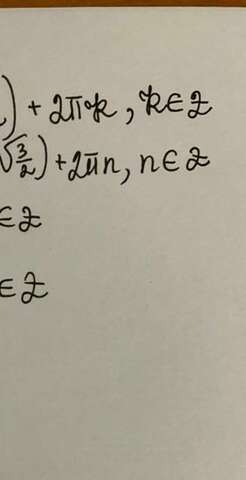 ) + 2πk, k∈Z
√3/2) + 2πn, n∈Z
∈Z
∈Z